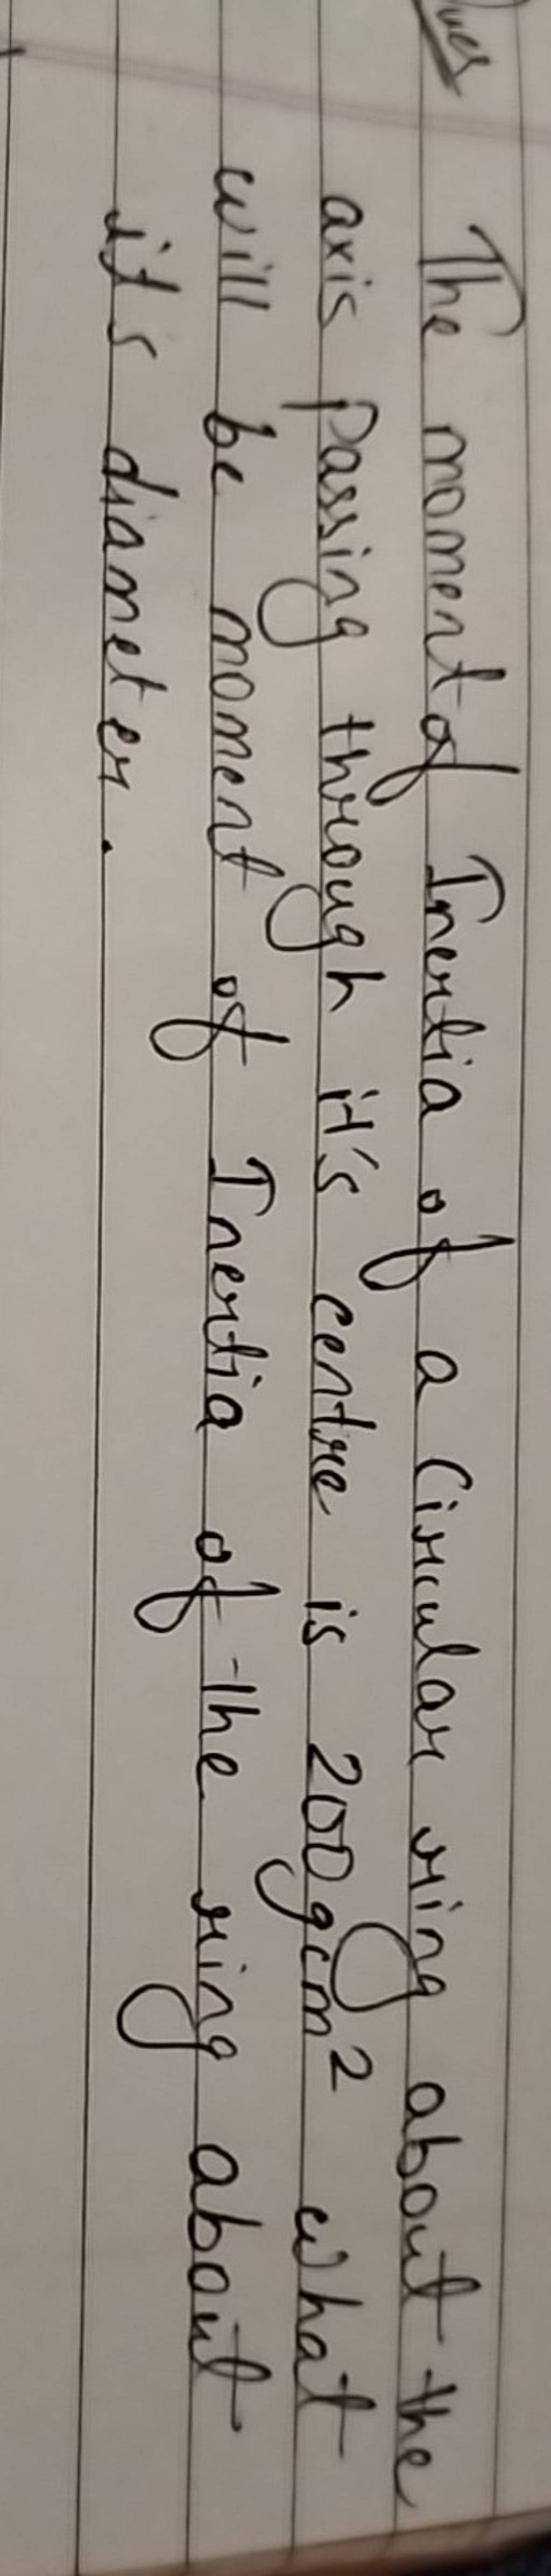 Ques The moment of Inertia of a Circular ring about the
axis passing through it's centre is 200gcm² what
will be moment of Inertia of the ring about
it's diameter.